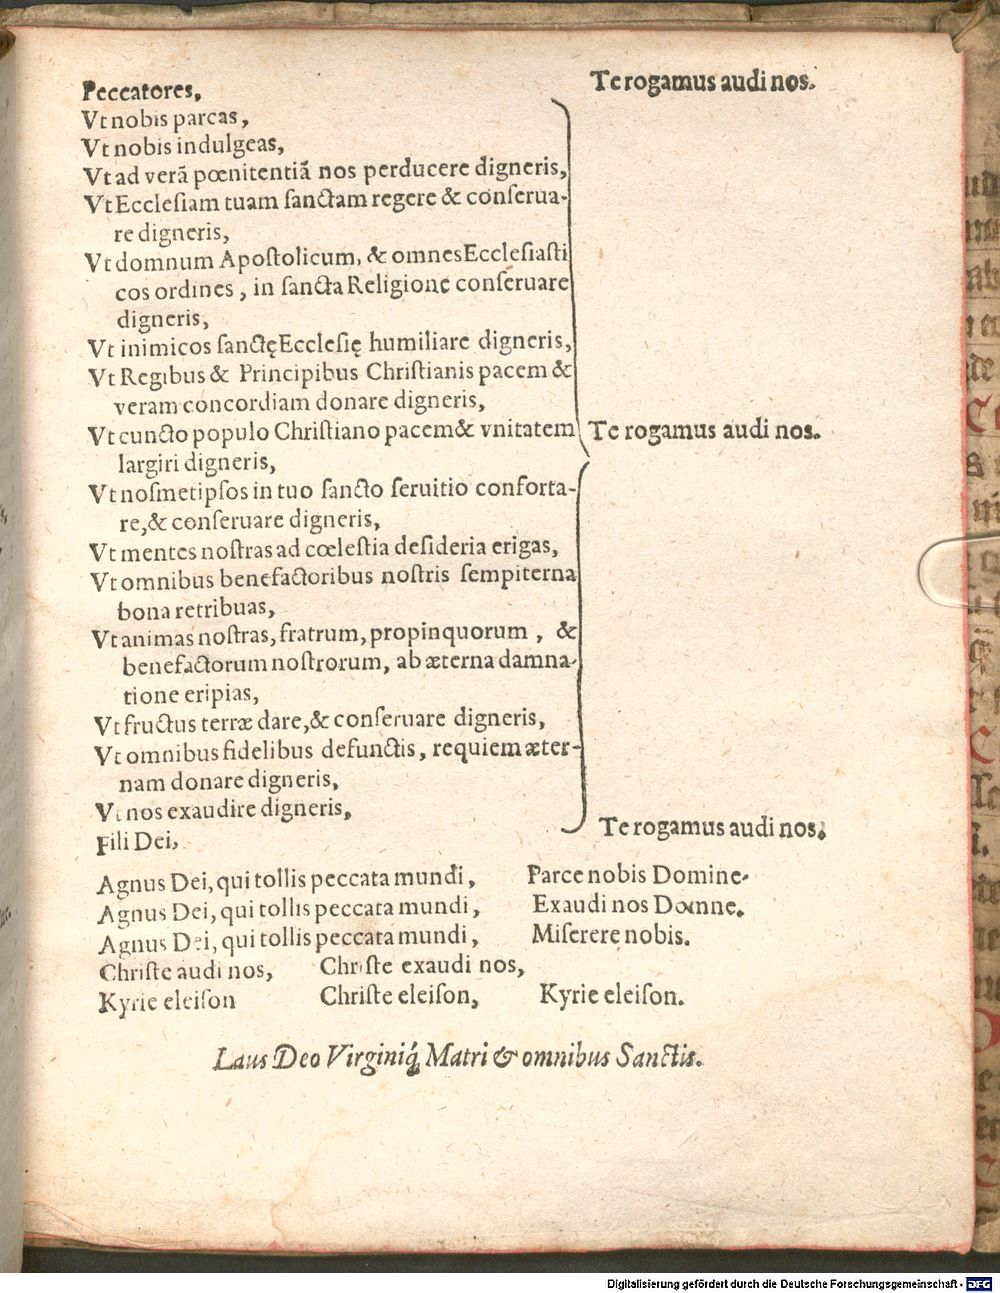 Peccatores, Te rogamus audi nos.
Vt nobis parcas,
Vt nobis indulgeas,
Vt ad verã pœnitentiã nos perducere digneris,
Vt Ecclesiam tuam sanctam regere & conserua-
re digneris,
Vt domnum Apostolicum, & omnes Ecclesiasti
cos ordines, in sancta Religione conseruare
digneris,
Vt inimicos sanctę Ecclesię humiliare digneris,
Vt Regibus & Principibus Christianis pacem &
veram concordiam donare digneris,
Vt cuncto populo Christiano pacem & vnitatem Te rogamus audi nos.
largiri digneris,
Vt nosmetipsos in tuo sancto seruitio conforta-
re, & conseruare digneris,
Vt mentes nostras ad cœlestia desideria erigas,
Vt omnibus benefactoribus nostris sempiterna
bona retribuas,
Vt animas nostras, fratrum, propinquorum, &
benefactorum nostrorum, ab æterna damna-
tione eripias,
Vt fructus terræ dare, & conseruare digneris,
Vt omnibus fidelibus defunctis, requiem æter-
nam donare digneris,
Vt nos exaudire digneris,
Te rogamus audi nos.
Fili Dei,
Agnus Dei, qui tollis peccata mundi, Parce nobis Domine.
Agnus Dei, qui tollis peccata mundi, Exaudi nos Domine.
Agnus Dei, qui tollis peccata mundi, Miserere nobis.
Christe audi nos, Christe exaudi nos,
Kyrie eleison Christe eleison, Kyrie eleison.
Laus Deo Virginiq́; Matri & omnibus Sanctis.
Digitalisierung gefördert durch die Deutsche Forschungsgemeinschaft - DFG